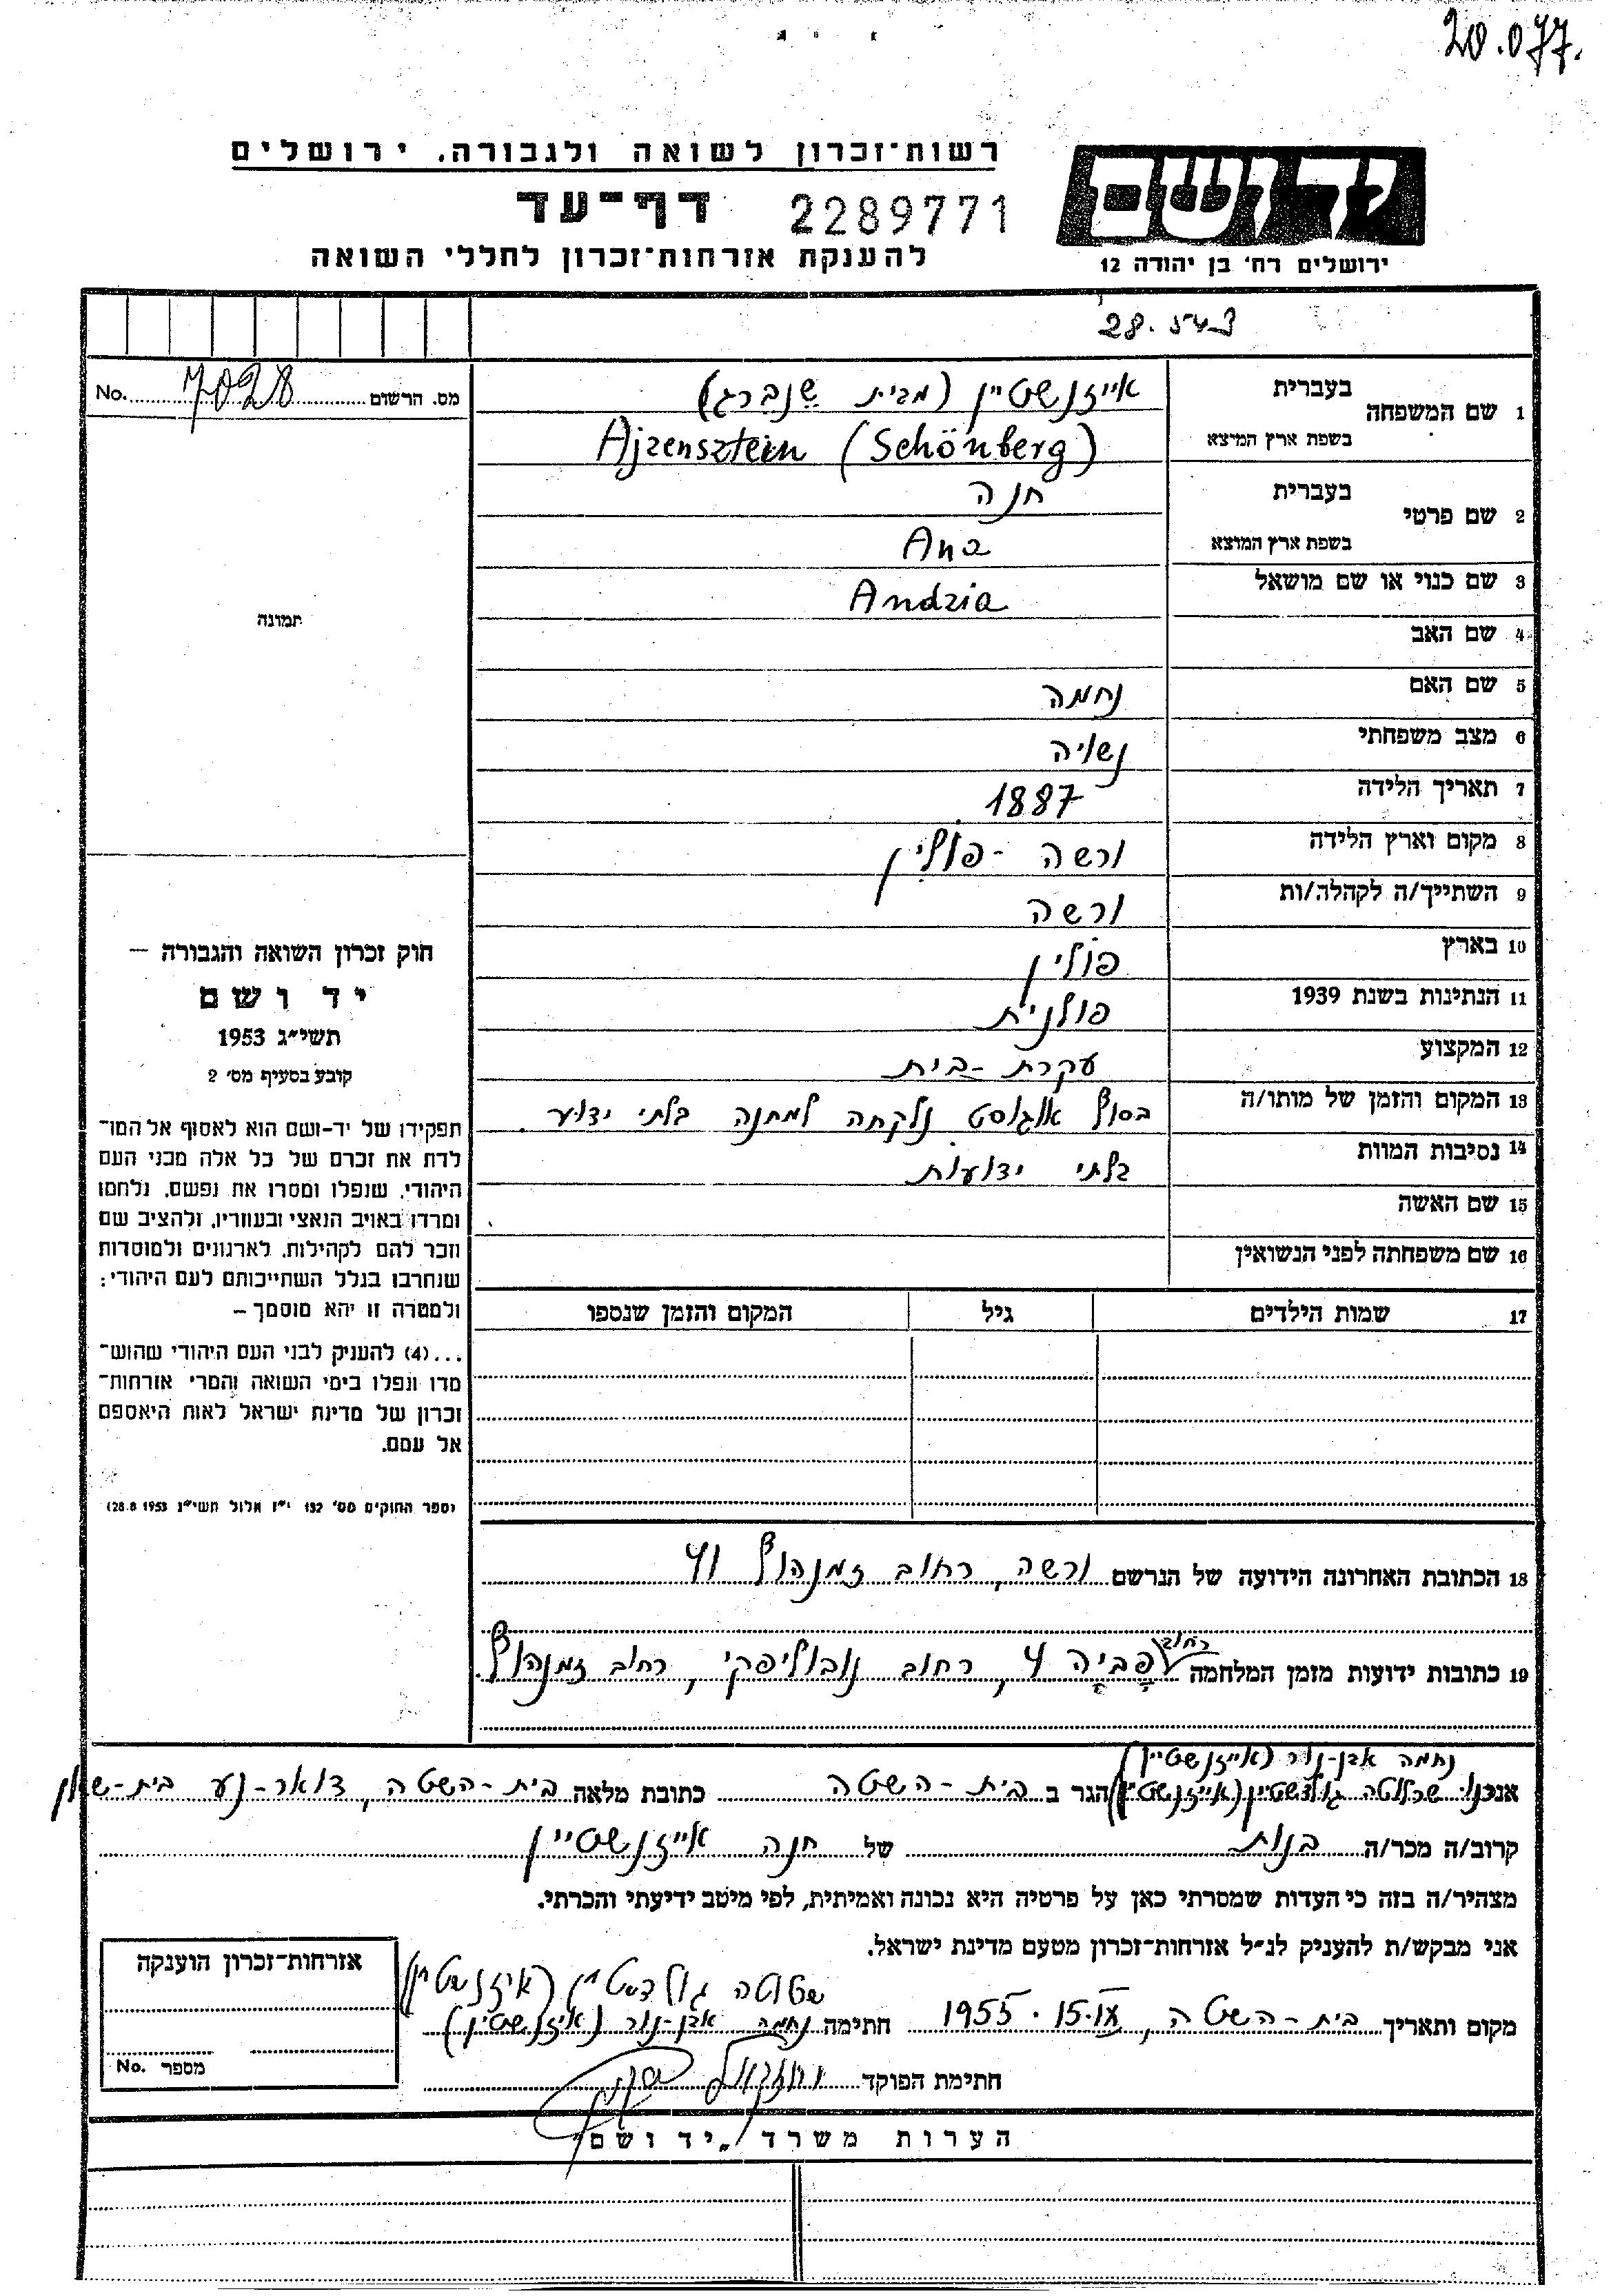 20.077.
רשות־זכרון לשואה ולגבורה. ירושלים
דף־עד 2289771
להענקת אזרחות־זכרון לחללי השואה
יד ושם
ירושלים רח' בן יהודה 12
מס. הרשום 7028 No.
תמונה
1 שם המשפחה
בעברית אייזנשטיין (מבית שנברג)
בשפת ארץ המוצא Ajzensztein (Schönberg)
2 שם פרטי
בעברית חנה
בשפת ארץ המוצא Ana
3 שם כנוי או שם מושאל Andzia
4 שם האב
5 שם האם נחמה
6 מצב משפחתי נשויה
7 תאריך הלידה 1887
8 מקום וארץ הלידה ורשה - פולין
9 השתייך/ה לקהלה/ות ורשה
10 בארץ פולין
11 הנתינות בשנת 1939 פולנית
12 המקצוע עקרת-בית
13 המקום והזמן של מותו/ה בסוף אוגוסט נלקחה למחנה בלתי ידוע.
14 נסיבות המוות בלתי ידועות
15 שם האשה
16 שם משפחתה לפני הנשואין
17 שמות הילדים גיל המקום והזמן שנספו
חוק זכרון השואה והגבורה —
יד ושם
תשי״ג 1953
קובע בסעיף מס' 2
תפקידו של יד-ושם הוא לאסוף אל המו־
לדת את זכרם של כל אלה מבני העם
היהודי, שנפלו ומסרו את נפשם, נלחמו
ומרדו באויב הנאצי ובעוזריו, ולהציב שם
וזכר להם לקהילות, לארגונים ולמוסדות
שנחרבו בגלל השתייכותם לעם היהודי;
ולמטרה זו יהא מוסמך –
...(4) להענקת לבני העם היהודי שהוש־
מדו ונפלו בימי השואה והמרי אזרחות־
זכרון של מדינת ישראל לאות היאספם
אל עמם.
(ספר החוקים מס' 132 י״ז אלול תשי״ג 28.8.1953)
18 הכתובת האחרונה הידועה של הנרשם ורשה, רחוב זמנהוף 41
19 כתובות ידועות מזמן המלחמה רחוב פביה 4, רחוב נובוליפקי, רחוב זמנהוף.
נחמה אבן-נור (אייזנשטיין)
אנכנו שרלוטה גולדשטיין (אייזנשטיין) הגר ב בית-השטה כתובת מלאה בית-השטה, דואר-נע בית-שאן
קרוב/ה מכר/ה בנות של חנה אייזנשטיין
מצהיר/ה בזה כי העדות שמסרתי כאן על פרטיה היא נכונה ואמיתית, לפי מיטב ידיעתי והכרתי.
אני מבקש/ת להעניק לנ״ל אזרחות־זכרון מטעם מדינת ישראל.
גולדשטיין (אייזנשטיין)
מקום ותאריך בית-השטה, 15.IX.1955 חתימה נחמה אבן-נור (אייזנשטיין)
חתימת הפוקד יחזקאל
אזרחות־זכרון הוענקה
מספר No.
הערות משרד „יד ושם״